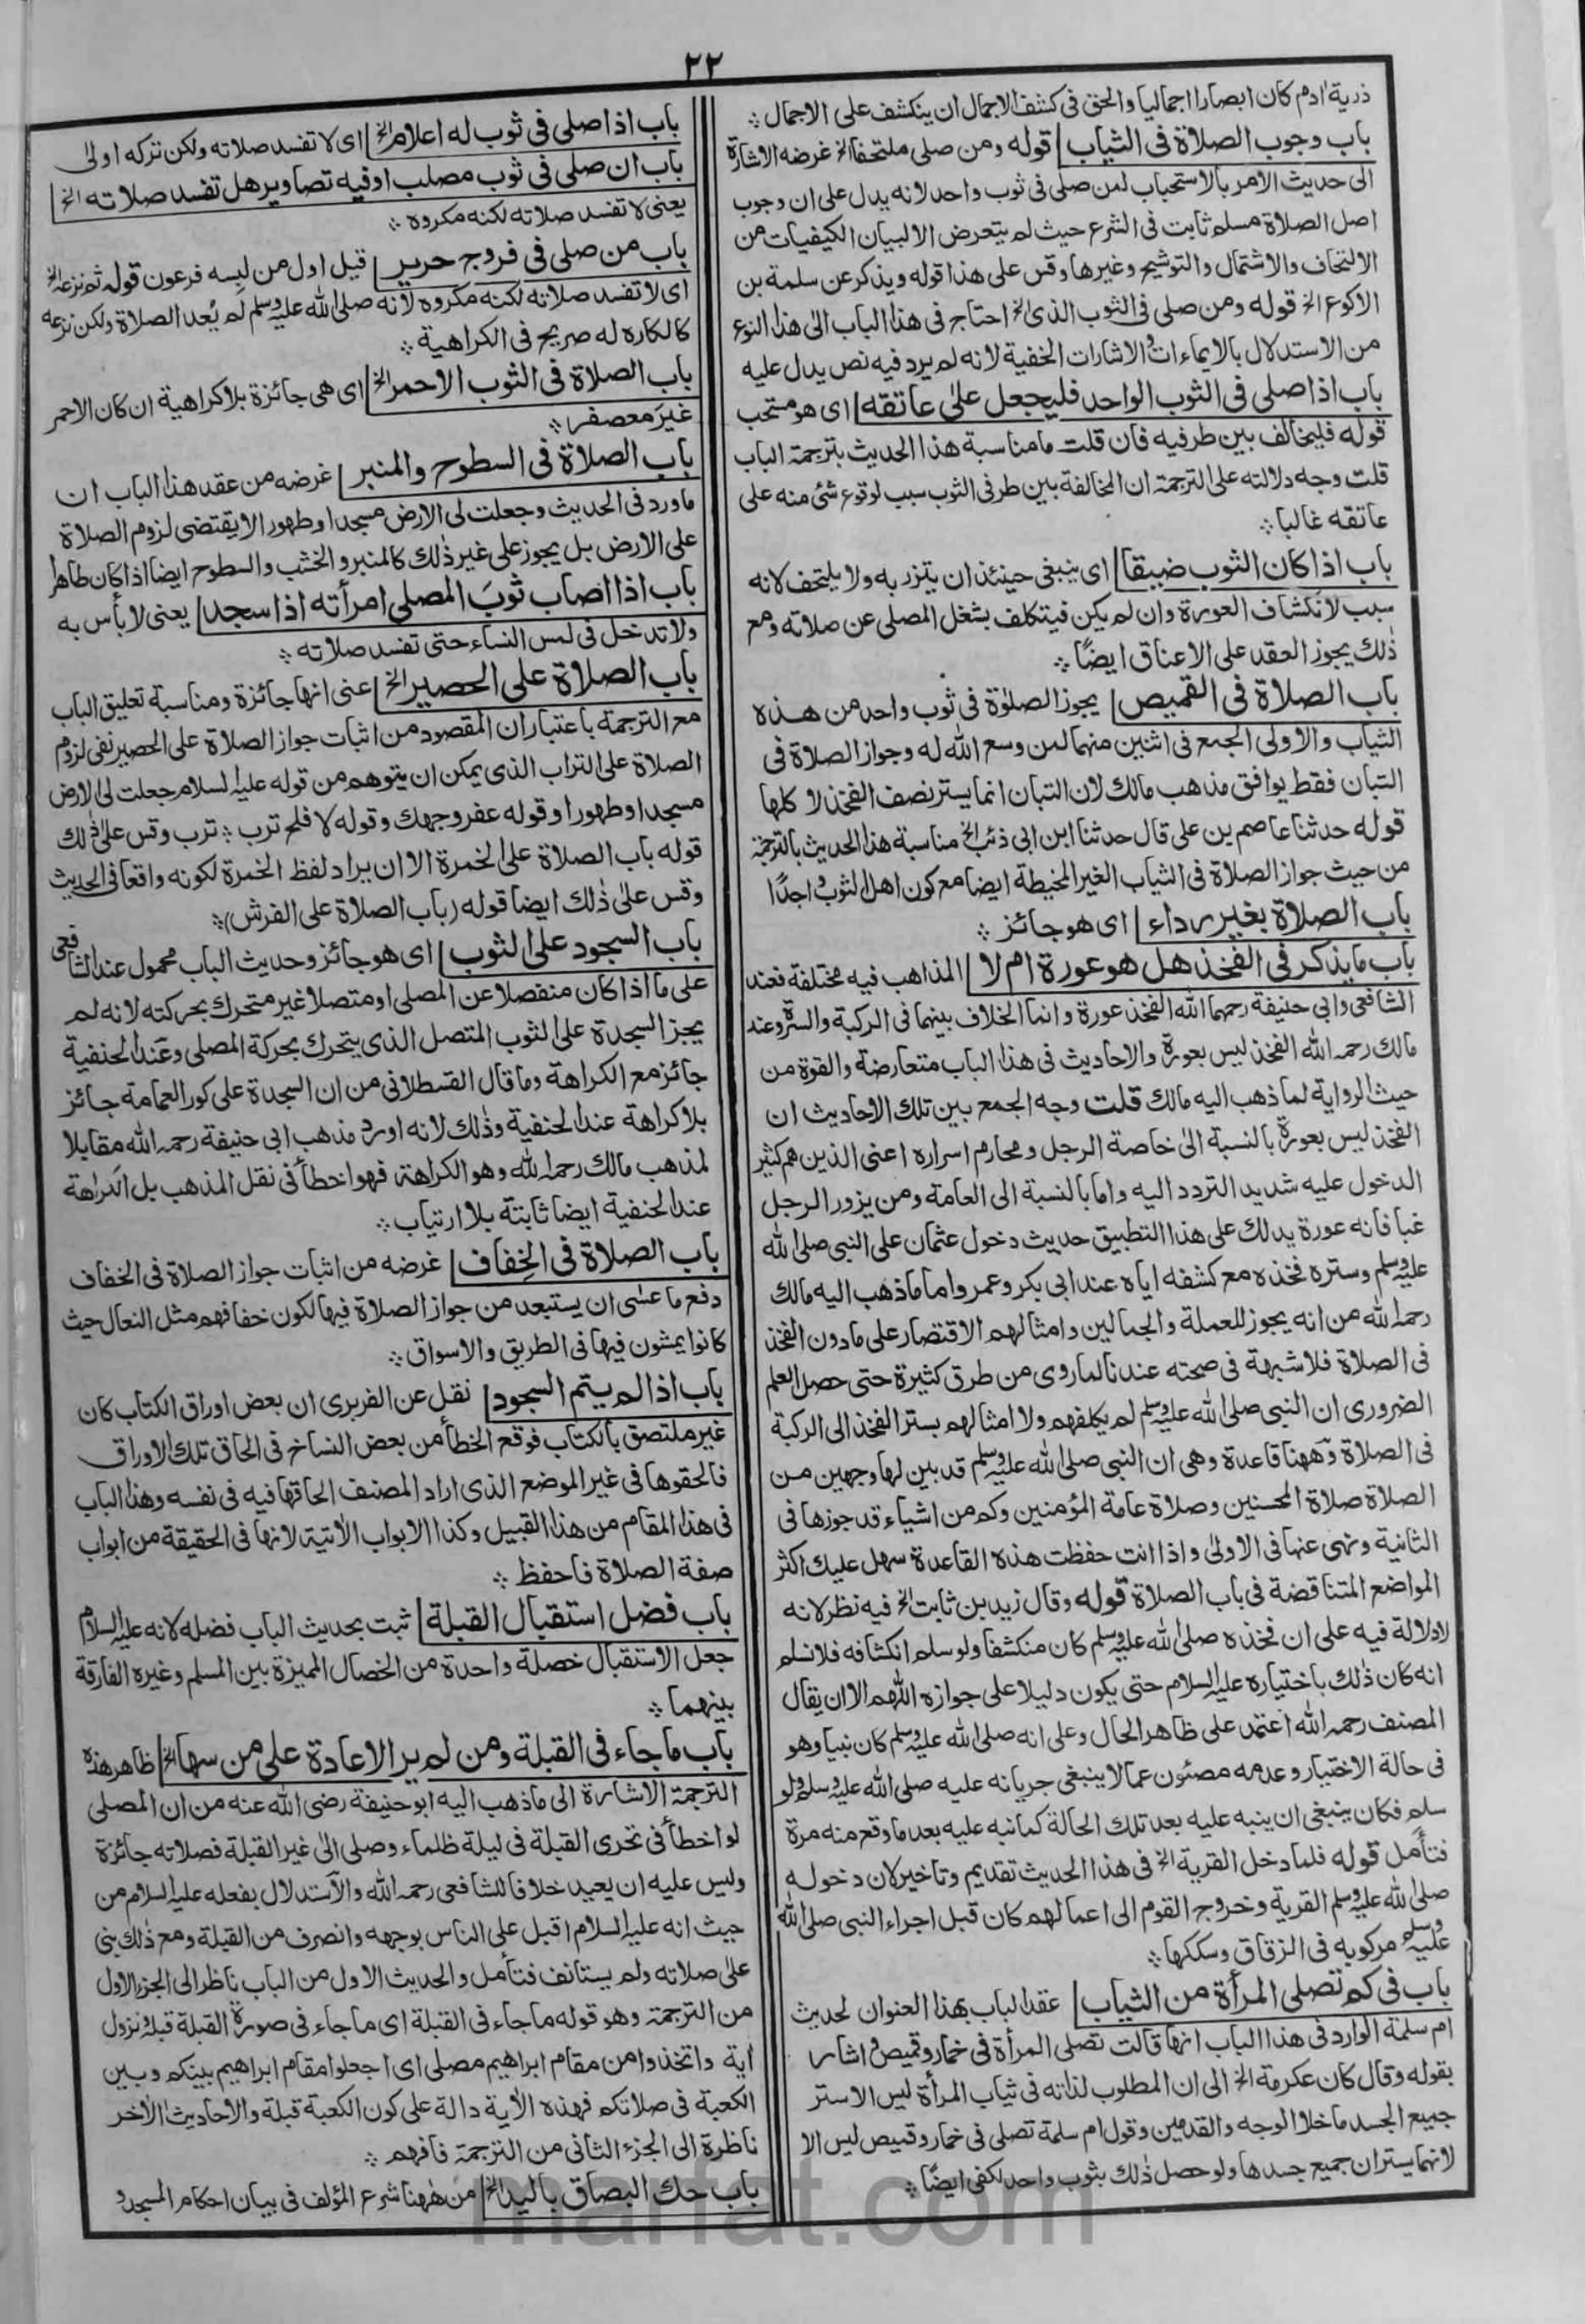 ٢٢
ذرية ادم كان ابصارا اجماليا والحق في كشف الاجمال ان ينكشف على الاجمال
باب وجوب الصلاة فى الثياب قوله ومن صلى ملتحفا الخ غرضه الاشارة
الى حديث الامر بالاستحباب لمن صلى فى ثوب واحد لانه يدل على ان وجوب
اصل الصلاة مسلم ثابت فى الشرع حيث لم يتعرض الا لبيان الكيفيات من
الالتحاف والاشتمال والتوشيح وغيرها وقس على هذا قوله ويذكر عن سلمة بن
الاكوع الخ قوله ومن صلى فى الثوب الذى الخ احتاج فى هذا الباب الى هذا النوع
من الاستدلال بالايماءات والاشارات الخفية لانه لم يرد فيه نص يدل عليه
باب اذا صلى فى الثوب الواحد فليجعل على عاتقه اى هو مستحب
قوله فليخالف بين طرفيه فان قلت ما مناسبة هذا الحديث بترجمة الباب
قلت وجه دلالته على الترجمة ان المخالفة بين طرفى الثوب سبب لوقوع شئ منه على
عاتقه غالبا
باب اذا كان الثوب ضيقا اى ينبغى حينئذ ان يتزر به ولا يلتحف لانه
سبب لانكشاف العورة وان لم يكن فيتكلف يشغل المصلى عن صلاته ومع
ذلك يجوز العقد على الاعناق ايضًا
باب الصلاة فى القميص يجوز الصلوة فى ثوب واحد من هذه
الثياب والاولى الجمع فى اثنين منهما لمن وسع الله له وجواز الصلاة فى
التبان فقط يوافق مذهب مالك لان التبان انما يستر نصف الفخذ لا كلها
قوله حدثنا عاصم بن على قال حدثنا ابن ابى ذئب الخ مناسبة هذا الحديث بالترجمة
من حيث جواز الصلاة فى الثياب الغير المخيطة ايضا مع كون اهل الثوب واجدًا
باب الصلاة بغير رداء اى هو جائز
باب ما يذكر فى الفخذ هل هو عورة ام لا المذاهب فيه مختلفة فعند
الشافعى وابى حنيفة رحمهما الله الفخذ عورة وانما الخلاف بينهما فى الركبة والسرة وعند
مالك رحمه الله الفخذ ليس بعورة والاحاديث فى هذا الباب متعارضة والقوة من
حيث الرواية لما ذهب اليه مالك قلت وجه الجمع بين تلك الاحاديث ان
الفخذ ليس بعورة بالنسبة الى خاصة الرجل ومحارم اسراره اعنى الذين هم كثير
الدخول عليه شديد التردد اليه واما بالنسبة الى العامة ومن يزور الرجل
غبا فانه عورة يدلك على هذا التطبيق حديث دخول عثمان على النبى صلى الله
عليه وسلم وستره فخذه مع كشفه اياه عند ابى بكر وعمر واما ما ذهب اليه مالك
رحمه الله من انه يجوز للعملة والجمالين وامثالهم الاقتصار على ما دون الفخذ
فى الصلاة فلا شبهة فى صحته عندنا لما روى من طرق كثيرة حتى حصل العلم
الضرورى ان النبى صلى الله عليه وسلم لم يكلفهم ولا امثالهم بستر الفخذ الى الركبة
فى الصلاة وههنا قاعدة وهى ان النبى صلى الله عليه وسلم قد بين لها وجهين من
الصلاة صلاة المحسنين وصلاة عامة المؤمنين وكم من اشياء قد جوزها فى
الثانية ونهى عنها فى الاولى واذا انت حفظت هذه القاعدة سهل عليك اكثر
المواضع المتناقضة فى باب الصلاة قوله وقال زيد بن ثابت الخ فيه نظر لانه
لا دلالة فيه على ان فخذه صلى الله عليه وسلم كان منكشفا ولو سلم انكشافه فلا نسلم
انه كان ذلك باختياره عليه السلام حتى يكون دليلا على جوازه اللهم الا ان يقال
المصنف رحمه الله اعتمد على ظاهر الحال وعلى انه صلى الله عليه وسلم كان نبيا وهو
فى حالة الاختيار وعدمه مصئون عما لا ينبغى جريانه عليه صلى الله عليه وسلم ولو
سلم فكان ينبغى ان ينبه عليه بعد تلك الحالة كما نبه عليه بعد ما وقع منه مرة
فتأمل قوله فلما دخل القرية الخ فى هذا الحديث تقديم وتاخير لان دخوله
صلى الله عليه وسلم القرية وخروج القوم الى اعمالهم كان قبل اجراء النبى صلى الله
عليه وسلم مركوبه فى الزقاق وسككها
باب فى كم تصلى المرأة من الثياب عقد الباب بهذا العنوان لحديث
ام سلمة الوارد فى هذا الباب انها قالت تصلى المرأة فى خمار وقميص واشار
بقوله وقال كان عكرمة الخ الى ان المطلوب لذاته فى ثياب المرأة ليس الا ستر
جميع الجسد ما خلا الوجه والقدمين وقول ام سلمة تصلى فى خمار وقميص ليس الا
لانهما يستران جميع جسدها ولو حصل ذلك بثوب واحد لكفى ايضًا
باب اذا صلى فى ثوب له اعلام الخ اى لا تفسد صلاته ولكن تركه اولى
باب ان صلى فى ثوب مصلب او فيه تصاوير هل تفسد صلاته الخ
يعنى لا تفسد صلاته لكنه مكروه
باب من صلى فى فروج حرير قيل اول من لبسه فرعون قوله ثم نزعه الخ
اى لا تفسد صلاته لكنه مكروه لانه صلى الله عليه وسلم لم يُعد الصلاة ولكن نزعه
كالكاره له صريح فى الكراهية
باب الصلاة فى الثوب الاحمر الخ اى هى جائزة بلا كراهية ان كان الاحمر
غير معصفر
باب الصلاة فى السطوح والمنبر غرضه من عقد هذا الباب ان
ما ورد فى الحديث وجعلت لى الارض مسجدا وطهورا لا يقتضى لزوم الصلاة
على الارض بل يجوز على غير ذلك كالمنبر والخشب والسطوح ايضا اذا كان طاهرا
باب اذا اصاب ثوبَ المصلى امرأته اذا سجد يعنى لا بأس به
ولا تدخل فى لمس النساء حتى تفسد صلاته
باب الصلاة على الحصير الخ عنى انها جائزة ومناسبة تعليق الباب
مع الترجمة باعتبار ان المقصود من اثبات جواز الصلاة على الحصير نفى لزوم
الصلاة على التراب الذى يمكن ان يتوهم من قوله عليه السلام جعلت لى الارض
مسجدا وطهورا وقوله عفر وجهك وقوله لا فلح ترب ترب وقس على ذلك
قوله باب الصلاة على الخمرة الا ان يراد لفظ الخمرة لكونه واقعا فى الحديث
وقس على ذلك ايضا قوله (باب الصلاة على الفرش)
باب السجود على الثوب اى هو جائز وحديث الباب محمول عند الشافعى
على ما اذا كان منفصلا عن المصلى او متصلا غير متحرك بحركته لانه لم
يجز السجدة على الثوب المتصل الذى يتحرك بحركة المصلى وعند الحنفية
جائز مع الكراهة وما قال القسطلانى من ان السجدة على كور العمامة جائز
بلا كراهة عند الحنفية وذلك لانه اورد مذهب ابى حنيفة رحمه الله مقابلا
لمذهب مالك رحمه الله وهو الكراهة فهو اخطأ فى نقل المذهب بل الكراهة
عند الحنفية ايضا ثابتة بلا ارتياب
باب الصلاة فى الخِفاف غرضه من اثبات جواز الصلاة فى الخفاف
دفع ما عسى ان يستبعد من جواز الصلاة فيها لكون خفافهم مثل النعال حيث
كانوا يمشون فيها فى الطريق والاسواق
باب اذا لم يتم السجود نقل عن الفربرى ان بعض اوراق الكتاب كان
غير ملتصق بالكتاب فوقع الخطأ من بعض النساخ فى الحاق تلك الاوراق
فالحقوها فى غير الموضع الذى اراد المصنف الحاقها فيه فى نفسه وهذا الباب
فى هذا المقام من هذا القبيل وكذا الابواب الاتية لانها فى الحقيقة من ابواب
صفة الصلاة فاحفظ
باب فضل استقبال القبلة ثبت بحديث الباب فضله لانه عليه السلام
جعل الاستقبال خصلة واحدة من الخصال المميزة بين المسلم وغيره الفارقة
بينهما
باب ما جاء فى القبلة ومن لم ير الاعادة على من سها الخ ظاهر هذه
الترجمة الاشارة الى ما ذهب اليه ابو حنيفة رضى الله عنه من ان المصلى
لو اخطأ فى تحرى القبلة فى ليلة ظلماء وصلى الى غير القبلة فصلاته جائزة
وليس عليه ان يعيد خلافا للشافعى رحمه الله والاستدلال بفعله عليه السلام من
حيث انه عليه السلام اقبل على الناس بوجهه وانصرف من القبلة ومع ذلك بنى
على صلاته ولم يستانف فتأمل والحديث الاول من الباب ناظر الى الجزء الاول
من الترجمة وهو قوله ما جاء فى القبلة اى ما جاء فى صورة القبلة قبلة ونزول
اية واتخذوا من مقام ابراهيم مصلى اى اجعلوا مقام ابراهيم بينكم وبين
الكعبة فى صلاتكم فهذه الاية دالة على كون الكعبة قبلة والاحاديث الأخر
ناظرة الى الجزء الثانى من الترجمة فافهم
باب حك البصاق باليد الخ من ههنا شرع المؤلف فى بيان احكام المسجد و
marfat.com